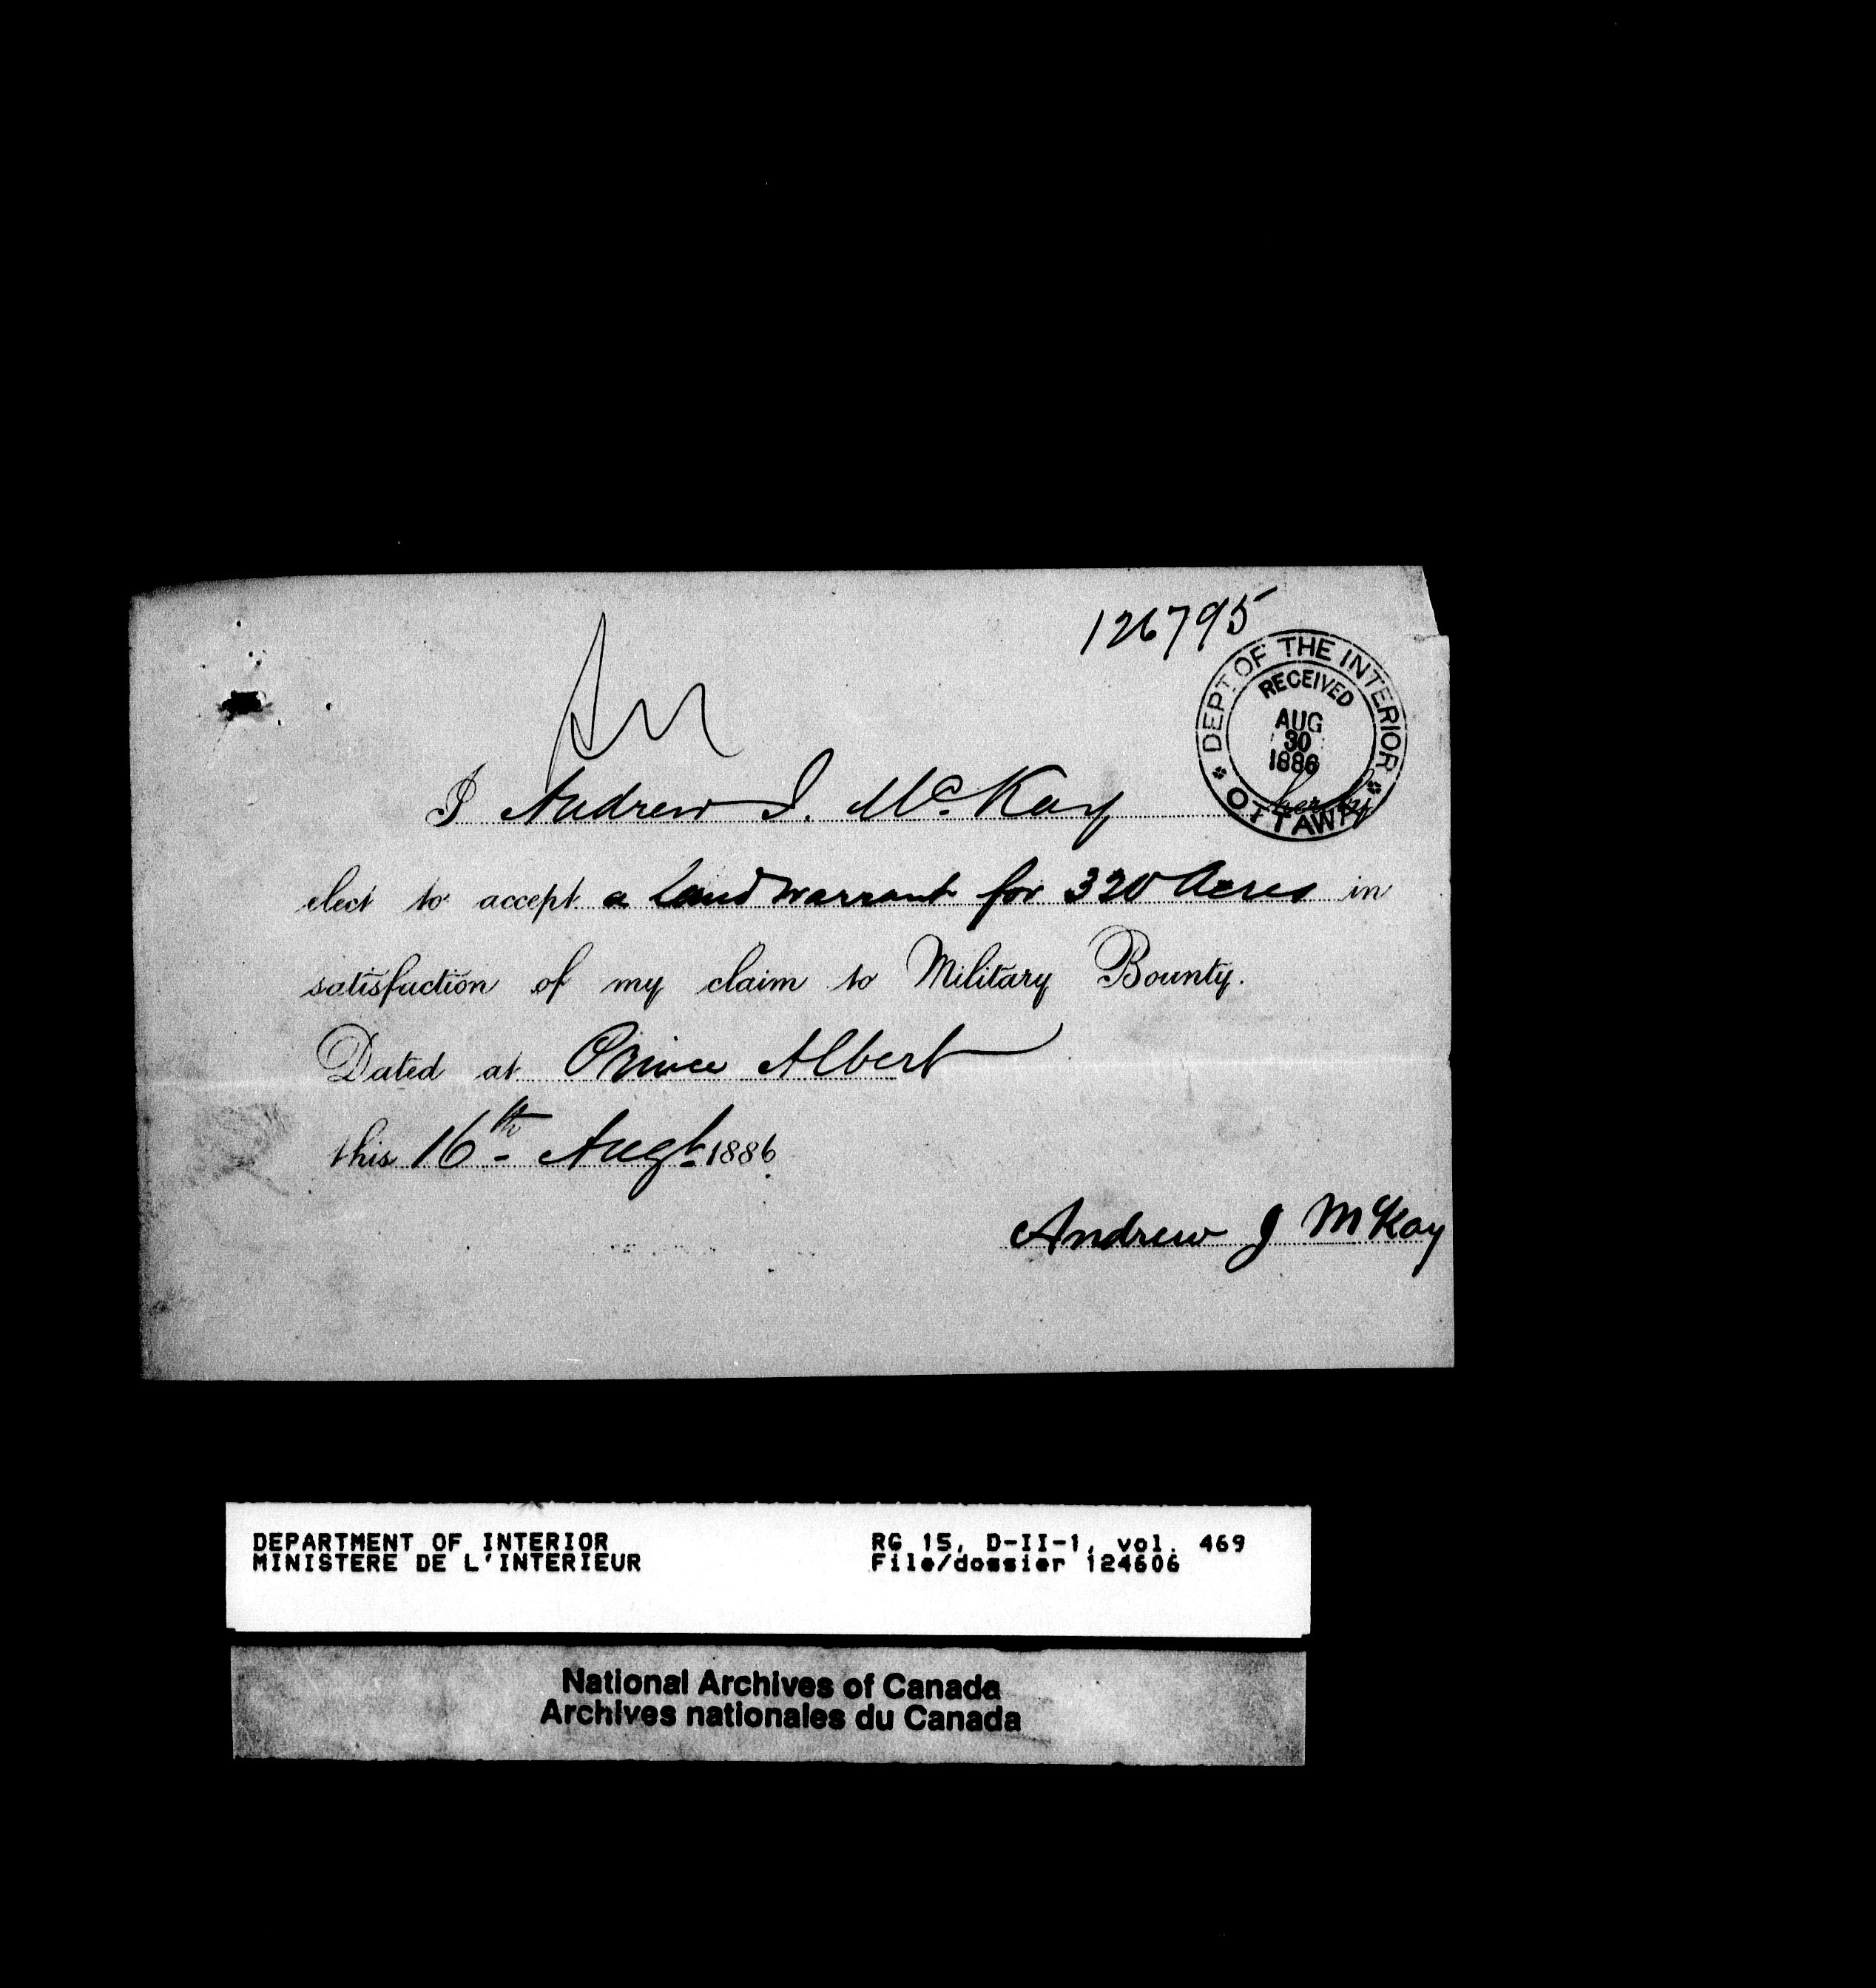 126795
DEPT. OF THE INTERIOR
RECEIVED
AUG
30
1886
OTTAWA
I Andrew J. McKay hereby
elect to accept a Land Warrant for 320 Acres in
satisfaction of my claim to Military Bounty.
Dated at Prince Albert
this 16th Augt 1886.
Andrew J McKay
DEPARTMENT OF INTERIOR RG 15, D-II-1, vol. 469
MINISTERE DE L'INTERIEUR File/dossier 124606
National Archives of Canada
Archives nationales du Canada